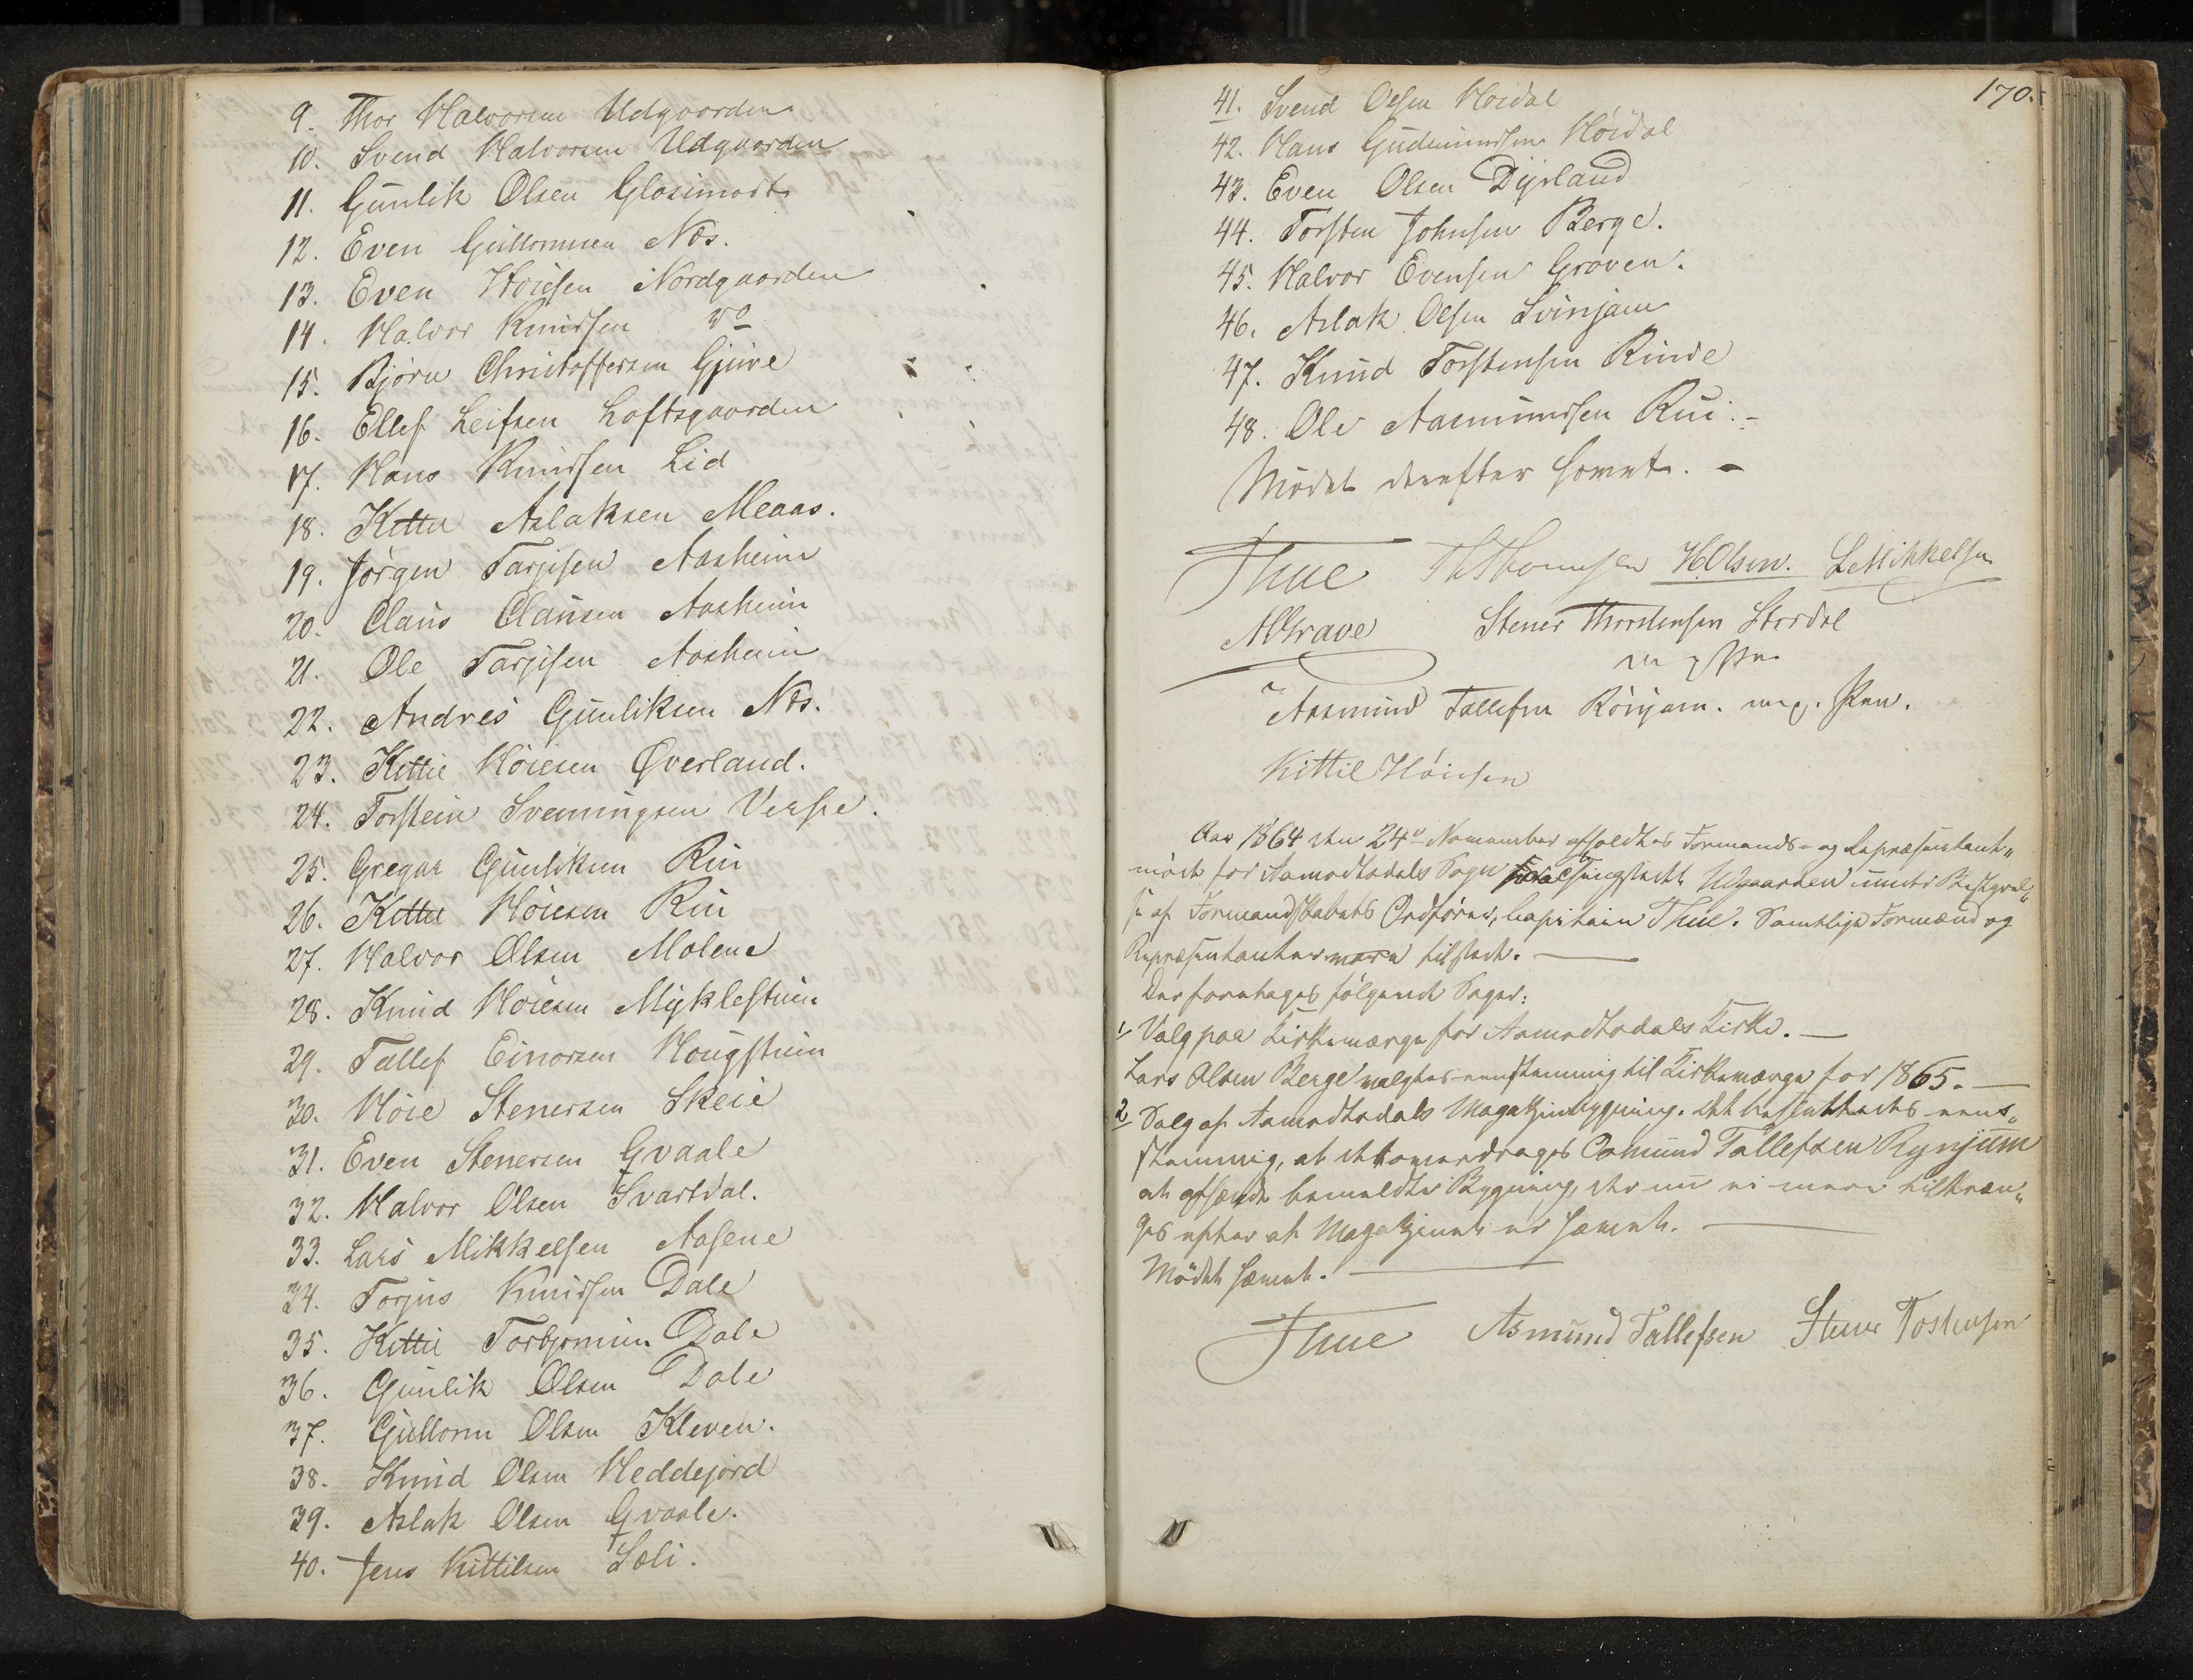 9. Thor Halvorsen Udgaarden
10. Svend Halvorsen Udgaarden
11. Gunlik Olsen Glosimodt
12. Even Gullormsen Næs.
13. Even Høiesen Nordgaarden
14. Halvor Knudsen do
15. Bjørn Christoffersen Gjuve
16. Ellef Leifsen Loftsgaarden
17. Hans Knudsen Lid
18. Kittil Aslaksen Meaas.
19. Jørgen Tarjesen Aasheim
20. Claus Clausen Aasheim
21. Ole Tarjesen Aasheim
22. Andres Gunliksen Næs.
23. Kittil Høiesen Øverland.
24. Torstein Svenningsen Verpe.
25. Gregar Gunliksen Rui
26. Kittil Høiesen Rui
27. Halvor Olsen Molene
28. Knud Høiesen Myklestuen
29. Tallef Einorsen Hougstuen
30. Høie Stenersen Skeie
31. Even Stenersen Qvaale
32. Halvor Olsen Svartdal.
33. Lars Mikkelsen Aasene
34. Torjus Knudsen Dale
35. Kittil Torbjørnsen Dale
36. Gunlik Olsen Dale
37. Gullorm Olsen Kleven.
38. Knud Olsen Heddejord
39. Aslak Olsen Qvaale.
40. Jens Kittilsen Sæli.
170.
41. Svend Olsen Høidal
42. Hans Gudmundsen Høidal
43. Even Olsen Dyrland
44. Torsten Johnsen Berge.
45. Halvor Evensen Groven.
46. Aslak Olsen Svinjam
47. Knud Torstensen Rinde
48. Ole Aasmundsen Rui. -
Mødet derefter hævet. -
Thue Th Thomesen H. Olsen. L Mikkelsen
A Grave Stener Thorstensen Stordal
m. p. Pen
Aasmund Tallefsen Rönjom. m. p. Pen.
Kittil Höiesen
Aar 1864 den 24de November afholdtes Formands- og Repræsentant„
møde for Aamodtsdals Sogn paa Thingstedet Udgaarden under Bestyrel„
se af Formandskabets Ordfører, Capitain Thue. Samtlige Formænd og
Repræsentanter vare tilstede. —
Der foretages følgende Sager:
1, Valg paa Kirkeværge for Aamodtsdals Kirke. —
Lars Olsen Berge valgtes eenstemmig til Kirkeværge for 1865. —
2 Salg af Aamodtsdals Magazinbygning. Det besluttedes eens„
stemmig, at det overdrages Asmund Tallefsen Rynjum
at afhænde bemeldte Bygning, der nu ei mere tiltræn„
ges efter at Magazinet er hævet. —
Mødet hævet. —
Thue Asmund Tallefsen Stener Tostensen